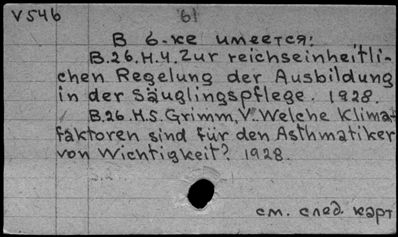 V546 61
В б-ке имеется:
B.26.H.4. Zur reichseinheitli-
chen Regelung der Ausbildung
in der Säuglingspflege. 1928.
B.26.H.5. Grimm, V. Welche Klima-
faktoren sind für den Asthmatiker
von Wichtigkeit? 1928.
см. след. карт